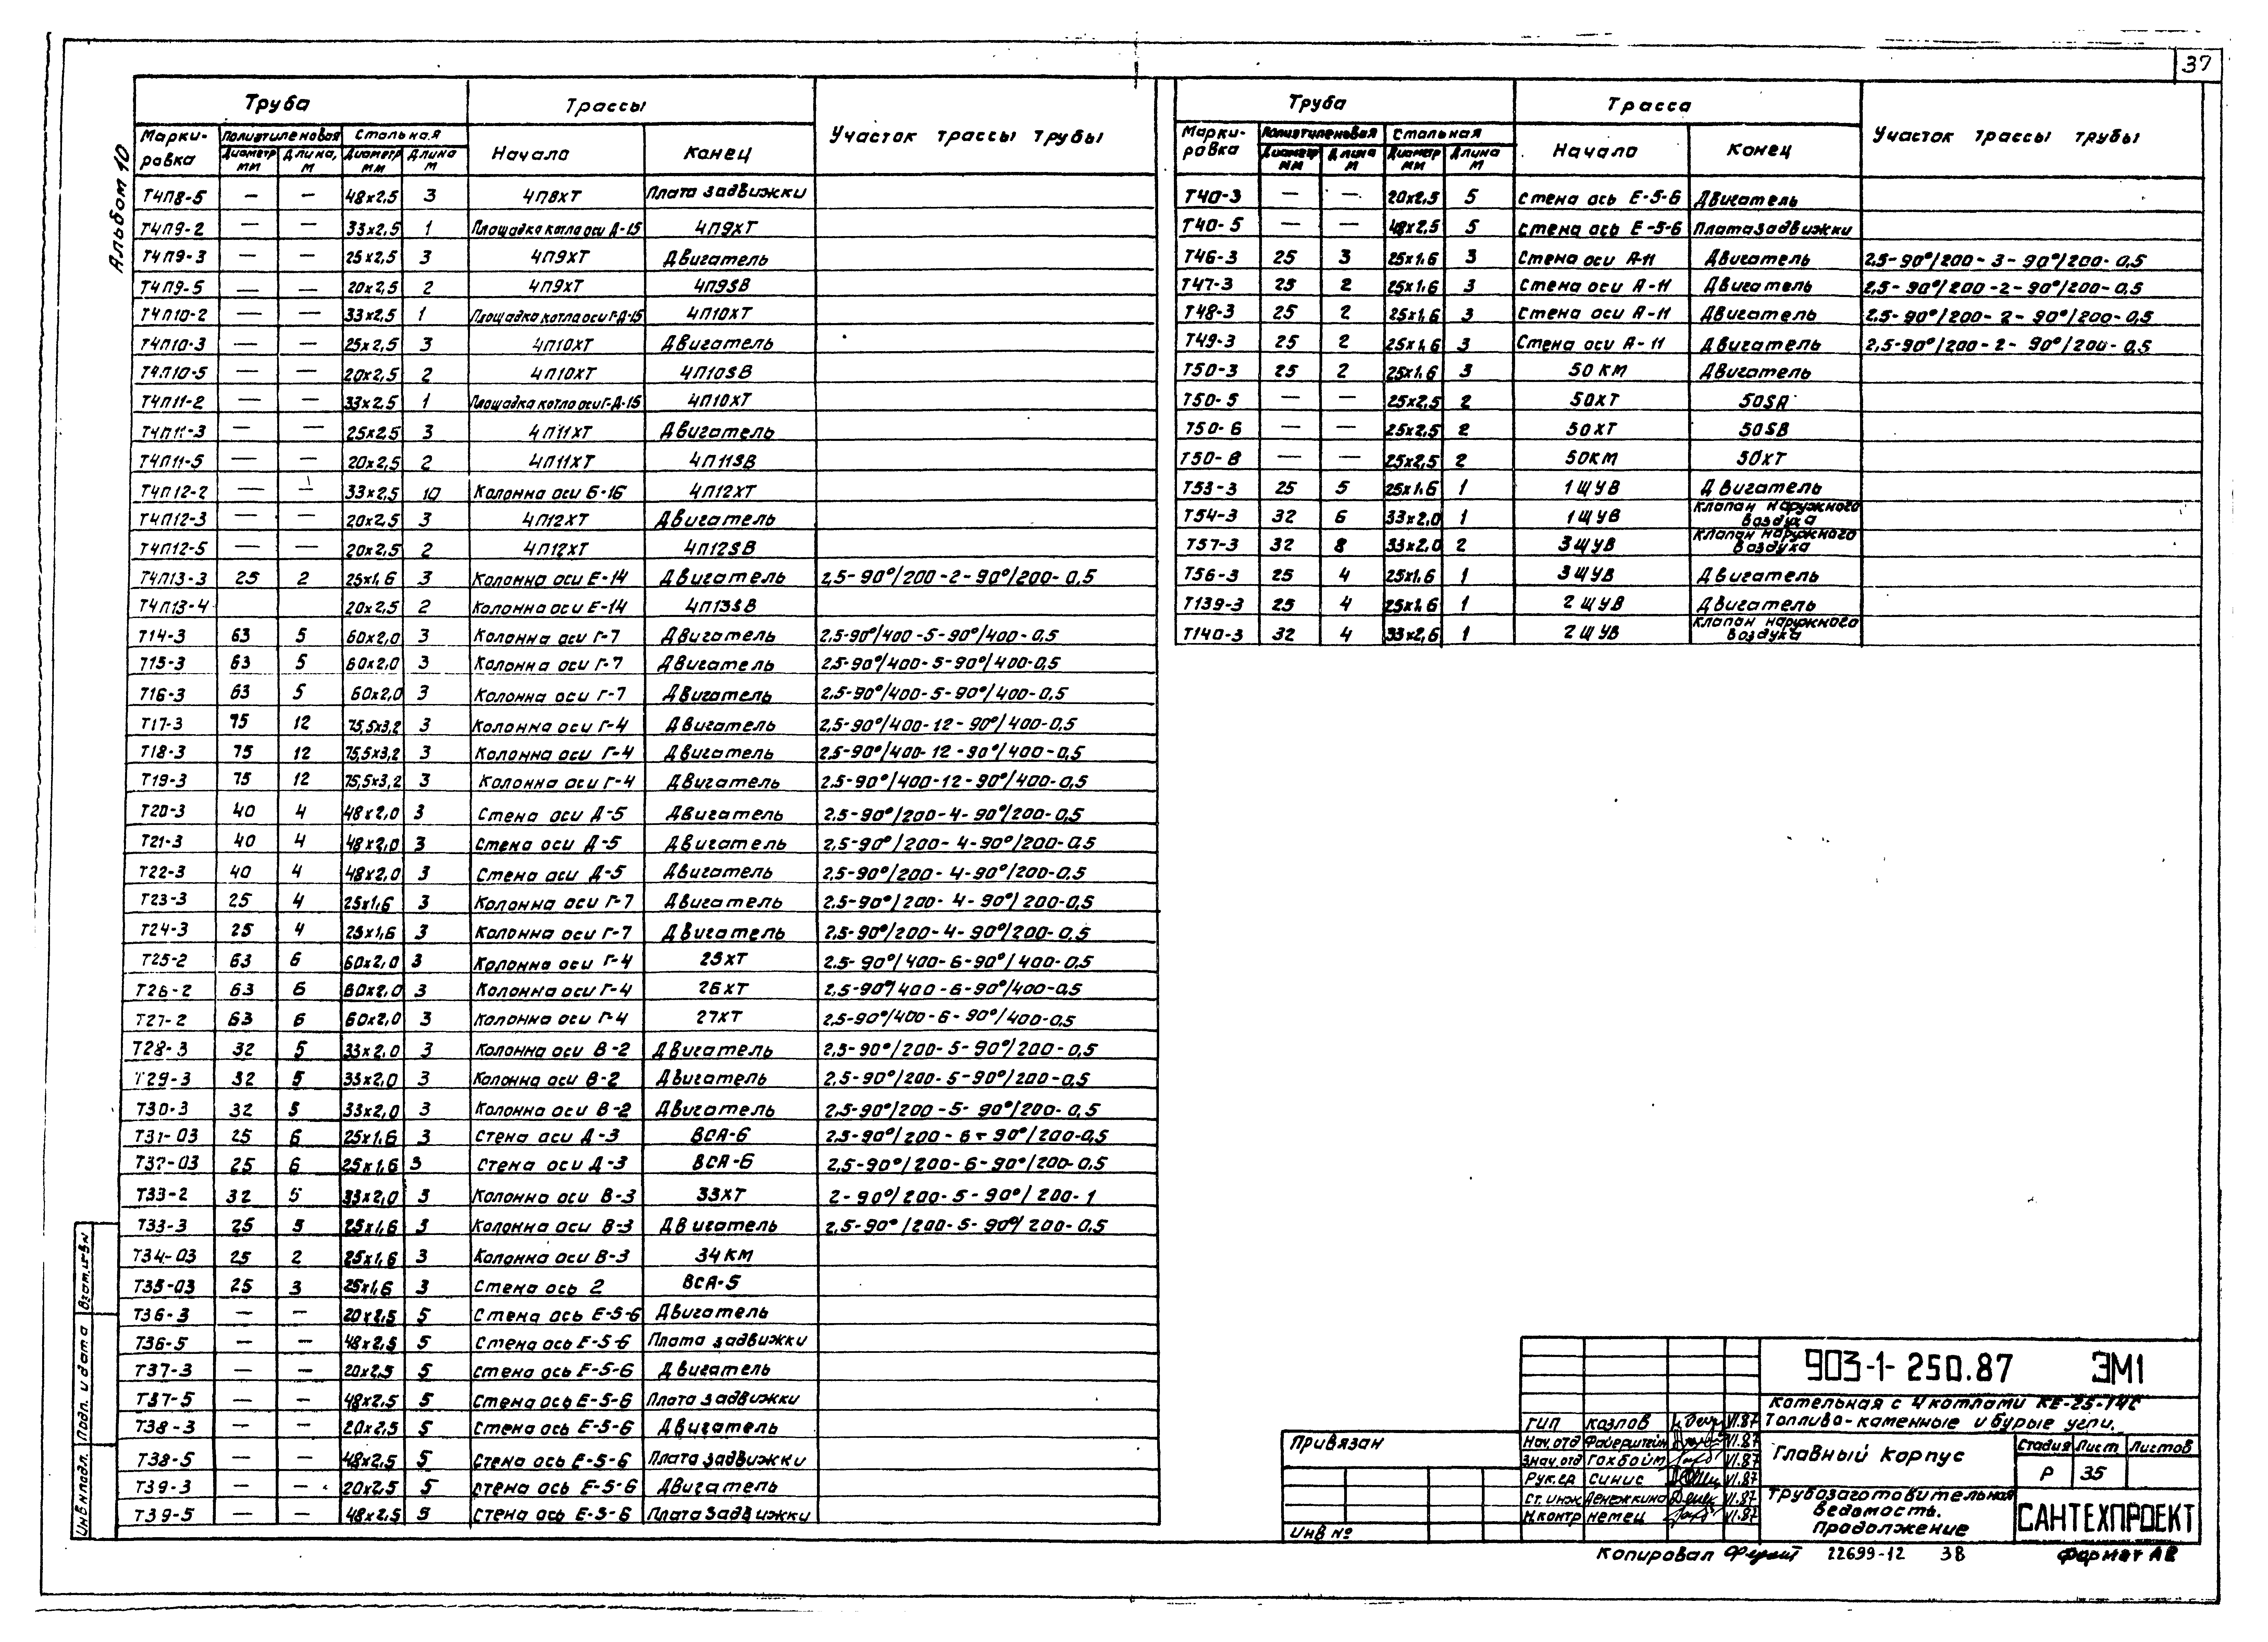 37
Альбом 10
Труба Трассы Участок трассы трубы
Марки-ровка Полиэтиленовая Стальная Начало Конец
Диаметр мм Длина, м Диаметр мм Длина м
Т4П8-5 — — 48х2,5 3 4П8ХТ Плата задвижки
Т4П9-2 — — 33х2,5 1 Площадка котла оси Д-15 4П9ХТ
Т4П9-3 — — 25х2,5 3 4П9ХТ Двигатель
Т4П9-5 — — 20х2,5 2 4П9ХТ 4П9SВ
Т4П10-2 — — 33х2,5 1 Площадка котла оси Г-Д-15 4П10ХТ
Т4П10-3 — — 25х2,5 3 4П10ХТ Двигатель
Т4П10-5 — — 20х2,5 2 4П10ХТ 4П10SВ
Т4П11-2 — — 33х2.5 1 Площадка котла оси Г-Д-15 4П10ХТ
Т4П11-3 — — 25х2.5 3 4П11ХТ Двигатель
Т4П11-5 — — 20х2,5 2 4П11ХТ 4П11SВ
Т4П12-2 — — 33х2,5 10 Колонна оси Б-16 4П12ХТ
Т4П12-3 — — 20х2,5 3 4П12ХТ Двигатель
Т4П12-5 — — 20х2,5 2 4П12ХТ 4П12SВ
Т4П13-3 25 2 25х1,6 3 Колонна оси Е-14 Двигатель 2,5-90°/200-2-90°/200-0,5
Т4П13-4 20х2,5 2 Колонна оси Е-14 4П13SВ
Т14-3 63 5 60х2,0 3 Колонна оси Г-7 Двигатель 2,5-90°/400-5-90°/400-0,5
Т15-3 63 5 60х2,0 3 Колонна оси Г-7 Двигатель 2.5-90°/400-5-90°/400-0,5
Т16-3 63 5 60х2,0 3 Колонна оси Г-7 Двигатель 2.5-90°/400-5-90°/400-0,5
Т17-3 75 12 75,5х3,2 3 Колонна оси Г-4 Двигатель 2,5-90°/400-12-90°/400-0,5
Т18-3 75 12 75,5х3,2 3 Колонна оси Г-4 Двигатель 2,5-90°/400-12-90°/400-0,5
Т19-3 75 12 75,5х3,2 3 Колонна оси Г-4 Двигатель 2.5-90°/400-12-90°/400-0,5
Т20-3 40 4 48х2,0 3 Стена оси Д-5 Двигатель 2.5-90°/200-4-90°/200-0,5
Т21-3 40 4 48х2,0 3 Стена оси Д-5 Двигатель 2,5-90°/200-4-90°/200-0.5
Т22-3 40 4 48х2.0 3 Стена оси Д-5 Двигатель 2,5-90°/200-4-90°/200-0,5
Т23-3 25 4 25х1,6 3 Колонна оси Г-7 Двигатель 2.5-90°/200-4-90°/200-0,5
Т24-3 25 4 25х1,6 3 Колонна оси Г-7 Двигатель 2,5-90°/200-4-90°/200-0,5
Т25-2 63 6 60х2,0 3 Колонна оси Г-4 25ХТ 2.5-90°/400-6-90°/400-0.5
Т26-2 63 6 60х2,0 3 Колонна оси Г-4 26ХТ 2,5-90°/400-6-90°/400-0,5
Т27-2 63 6 60х2,0 3 Колонна оси Г-4 27ХТ 2,5-90°/400-6-90°/400-0,5
Т28-3 32 5 33х2.0 3 Колонна оси В-2 Двигатель 2,5-90°/200-5-90°/200-0,5
Т29-3 32 5 33х2,0 3 Колонна оси В-2 Двигатель 2,5-90°/200-5-90°/200-0,5
Т30-3 32 5 33х2,0 3 Колонна оси В-2 Двигатель 2.5-90°/200-5-90°/200-0,5
Т31-03 25 6 25х1.6 3 Стена оси Д-3 ВСА-6 2.5-90°/200-6-90°/200-0,5
Т32-03 25 6 25х1,6 3 Стена оси Д-3 ВСА-6 2,5-90°/200-6-90°/200-0.5
Т33-2 32 5 33х2,0 3 Колонна оси В-3 33ХТ 2-90°/200-5-90°/200-1
Т33-3 25 5 25х1,6 3 Колонна оси В-3 Двигатель 2,5-90°/200-5-90°/200-0.5
Т34-03 25 2 25х1,6 3 Колонна оси В-3 34КМ
Т35-03 25 3 25х1,6 3 Стена ось 2 ВСА-5
Т36-3 — — 20х2,5 5 Стена ось Е-5-6 Двигатель
Т36-5 — — 48х2,5 5 Стена ось Е-5-6 Плата задвижки
Т37-3 — — 20х2,5 5 Стена ось Е-5-6 Двигатель
Т37-5 — — 48х2,5 5 Стена ось Е-5-6 Плата задвижки
Т38-3 — — 20х2,5 5 Стена ось Е-5-6 Двигатель
Т38-5 — — 48х2,5 5 Стена ось Е-5-6 Плата задвижки
Т39-3 — — 20х2,5 5 Стена ось Е-5-6 Двигатель
Т39-5 — — 48х2,5 5 Стена ось Е-5-6 Плата задвижки
Труба Трасса Участок трассы трубы
Марки-ровка Полиэтиленовая Стальная Начало Конец
Диаметр мм Длина м Диаметр мм Длина м
Т40-3 — — 20х2,5 5 Стена ось Е-5-6 Двигатель
Т40-5 — — 48х2,5 5 Стена ось Е-5-6 Плата задвижки
Т46-3 25 3 25х1.6 3 Стена оси А-11 Двигатель 2,5-90°/200-3-90°/200-0,5
Т47-3 25 2 25х1.6 3 Стена оси А-11 Двигатель 2,5-90°/200-2-90°/200-0,5
Т48-3 25 2 25х1,6 3 Стена оси А-11 Двигатель 2.5-90°/200-2-90°/200-0,5
Т49-3 25 2 25х1,6 3 Стена оси А-11 Двигатель 2,5-90°/200-2-90°/200-0,5
Т50-3 25 2 25х1,6 3 50КМ Двигатель
Т50-5 — — 25х2,5 2 50ХТ 50SА
Т50-6 — — 25х2,5 2 50ХТ 50SВ
Т50-8 — — 25х2,5 2 50КМ 50ХТ
Т53-3 25 5 25х1,6 1 1ЩУВ Двигатель
Т54-3 32 6 33х2,0 1 1ЩУВ Клапан наружного воздуха
Т57-3 32 8 33х2,0 2 3ЩУВ Клапан наружного воздуха
Т56-3 25 4 25х1,6 1 3ЩУВ Двигатель
Т139-3 25 4 25х1,6 1 2ЩУВ Двигатель
Т140-3 32 4 33х2,6 1 2ЩУВ Клапан наружного воздуха
Привязан
Инв №
903-1-250.87 ЭМ1
Котельная с 4 котлами КЕ-25-14С
Топливо-каменные и бурые угли.
ГИП Козлов VI.87
Нач.отд Файерштейн VI.87
Знач.отд Гохбойм VI.87
Рук.гр Синис VI.87
Ст.инж Денежкина VI.87
Н.контр Немец VI.87
Главный корпус
Стадия Лист Листов
Р 35
Трубозаготовительная
ведомость.
Продолжение
САНТЕХПРОЕКТ
Копировал 22699-12 38 Формат А2
Инв № подл. Подп. и дата Взам.инв№